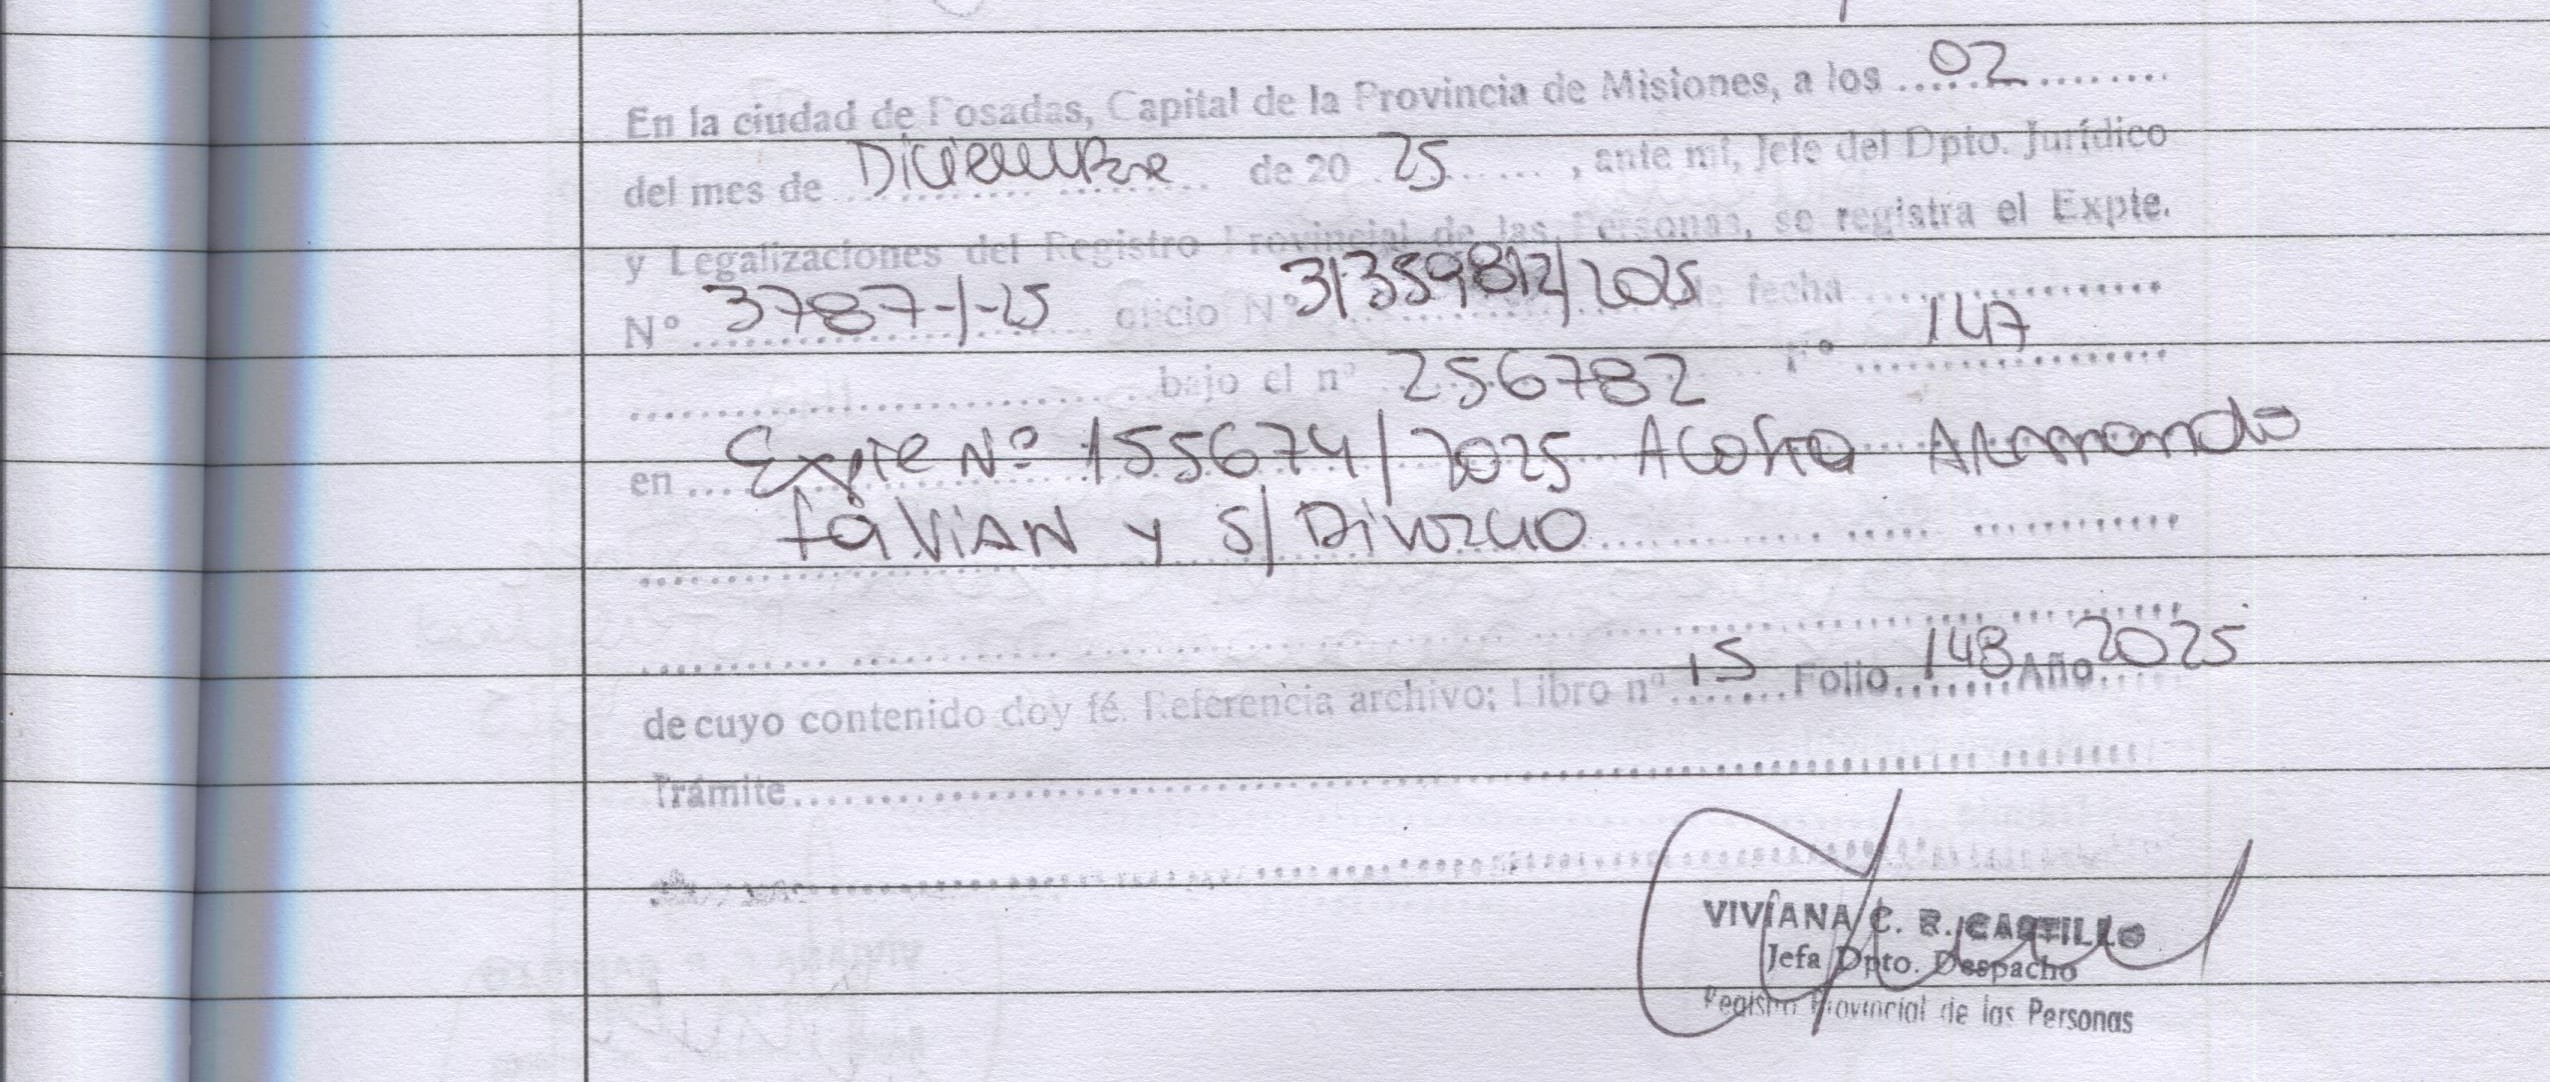 En la ciudad de Posadas, Capital de la Provincia de Misiones, a los ..... 02 .........
del mes de ... Diciembre ... de 20 .. 25 ......, ante mí, Jefe del Dpto. Jurídico
y Legalizaciones del Registro Provincial de las Personas, se registra el Expte.
Nº 3787-/-25 oficio Nº 31359812/2025 de fecha ..................
.............................. bajo el nº 256782 Fº ... 147 ...
en ... Expte Nº 155674/2025 Acosta Armando
favian y s/ Divorcio ..................
..................
de cuyo contenido doy fé. Referencia archivo; Libro nº 15 Folio 148 Año 2025
Trámite..................
VIVIANA C. R. CASTILLO
Jefa Dpto. Despacho
Registro Provincial de las Personas